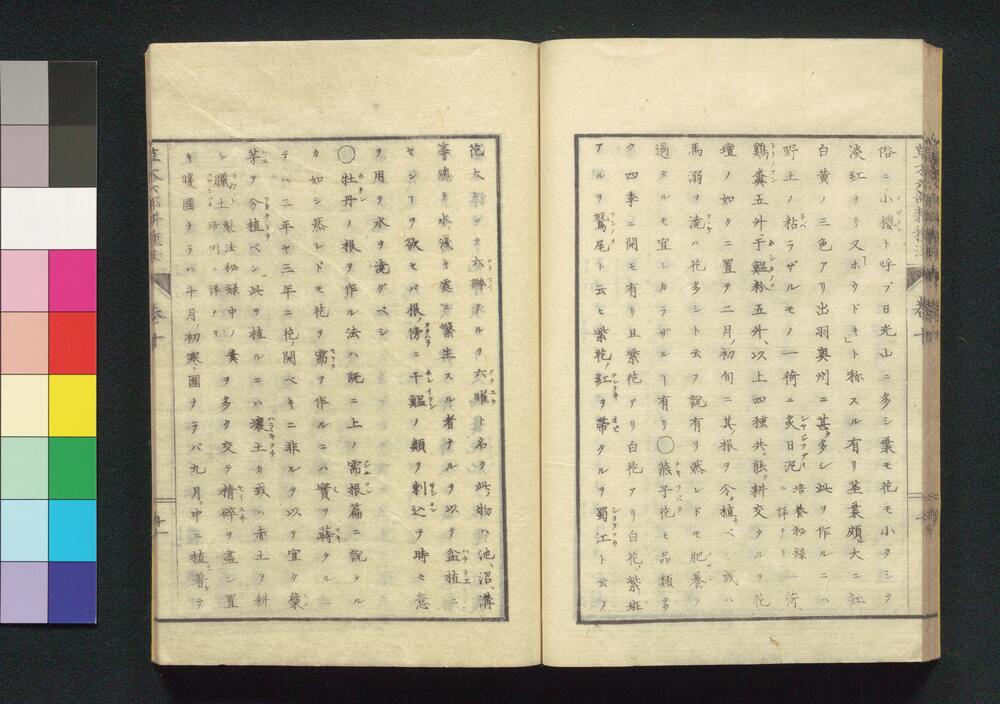 俗ニ小櫻ト呼ブ日光山ニ多シ葉モ花モ小クシテ
淡紅ナリ又「ホウドキ」ト称スル有リ茎葉頗ル大ニ紅
白黄ノ二色アリ出羽奥州ニ甚タ多シ此ヲ作ルニハ
野土ノ粘ラザルモノ一荷ニ炙日泥培養秘録ニ詳ナリ一荷、
鷄糞五升干鰮粉五升、以上四種共ニ能ク耕交タルヲ花
壇ノ如クニ置ヲ二月ノ初旬ニ其ノ根ヲ分ケ植ベシ或ハ
馬溺ヲ澆ハ花多シト云フ説有リ然レドモ肥養ノ
過タルモ宜シカラザルヿ有リ○燕子花モ品類多
ク四季ニ開モ有リ且紫花アリ白花アリ白花ノ紫斑
アルヲ鷲尾ト云ヒ紫花ノ紅ヲ帯タルヲ蜀江ト云ノ
六瓣アルヲ六曜ト名ク此物ハ池、沼、溝
等總テ水ノ浅キ處ニ繁生スル者ナルヲ以テ盆植ニ
セシヿヲ欲セバ根傍ニ干鰮ノ類ヲ刺込テ時々意
ヲ用ヲ水ヲ澆グベシ
○牡丹ノ根ヲ作ル法ハ既ニ上ノ需根篇ニ說タル
カ如シ然レドモ花ヲ需ヲ作ルニハ實ヲ蒔タル
テハ二年ヤ三年ニ花ノ開ベキニ非ルヲ以テ宜ク蘖
芽ヲ分植ベシ此ヲ植ルニハ壤土カ或ハ赤土ヲ耕
シ臘土製法秘録中ノ培例ニ詳ナリ糞ヲ多ク交テ精碎ヲ盡シ置
キ暖國ナラバ十月ノ初寒國ナラバ九月ノ中ニ植着テ